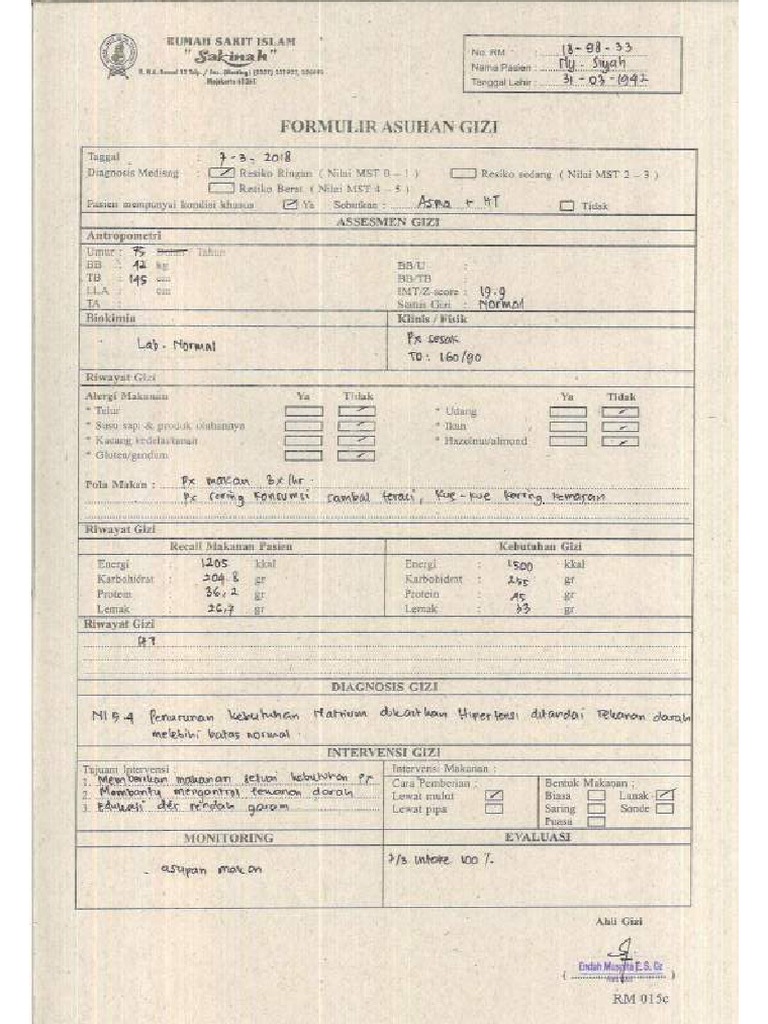 RUMAH SAKIT ISLAM
"Sakinah"
Mojokerto 61361
No. RM : 18-98-33
Nama Pasien : Ny. Siyah
Tanggal Lahir : 31-03-1942
FORMULIR ASUHAN GIZI
Taggal : 7-3-2018
Diagnosis Medisng : Resiko Ringan ( Nilai MST 0 – 1 ) Resiko sedang ( Nilai MST 2 – 3 )
Resiko Berat ( Nilai MST 4 – 5 )
Pasien mempunyai kondisi khusus Ya Sebutkan : Asma + HT Tidak
ASSESMEN GIZI
Antropometri
Umur : 75 Bulan Tahun
BB : 42 kg BB/U :
TB : 145 cm BB/TB
LLA : cm IMT/Z-score : 19.9
TA : Status Gizi : Normal
Biokimia Klinis / Fisik
Lab. Normal
Px sesak
TD : 160/90
Riwayat Gizi
Alergi Makanan Ya Tidak Ya Tidak
* Telur * Udang
* Susu sapi & produk olahannya * Ikan
* Kacang kedelai/tanah * Hazelnut/almond
* Gluten/gandum
Pola Makan : Px makan 3x/hr.
Px sering konsumsi sambal terasi, kue-kue kering kemasan
Riwayat Gizi
Recall Makanan Pasien Kebutuhan Gizi
Energi : 1205 kkal Energi : 1500 kkal
Karbohidrat : 204.8 gr Karbohidrat : 255 gr
Protein : 36,2 gr Protein : 45 gr
Lemak : 26,7 gr Lemak : 33 gr
Riwayat Gizi
HT
DIAGNOSIS GIZI
NI 5.4 Penurunan kebutuhan Natrium dikaitkan Hipertensi ditandai Tekanan darah
melebihi batas normal.
INTERVENSI GIZI
Tujuam Intervensi : Intervensi Makanan :
1. Memberikan makanan sesuai kebutuhan Px Cara Pemberian : Bentuk Makanan :
2. Membantu mengontrol tekanan darah Lewat mulut Biasa Lunak
3. Edukasi diet rendah garam Lewat pipa Saring Sonde
Puasa
MONITORING EVALUASI
- asupan makan 7/3 intake 100 %
Ahli Gizi
RM 015c